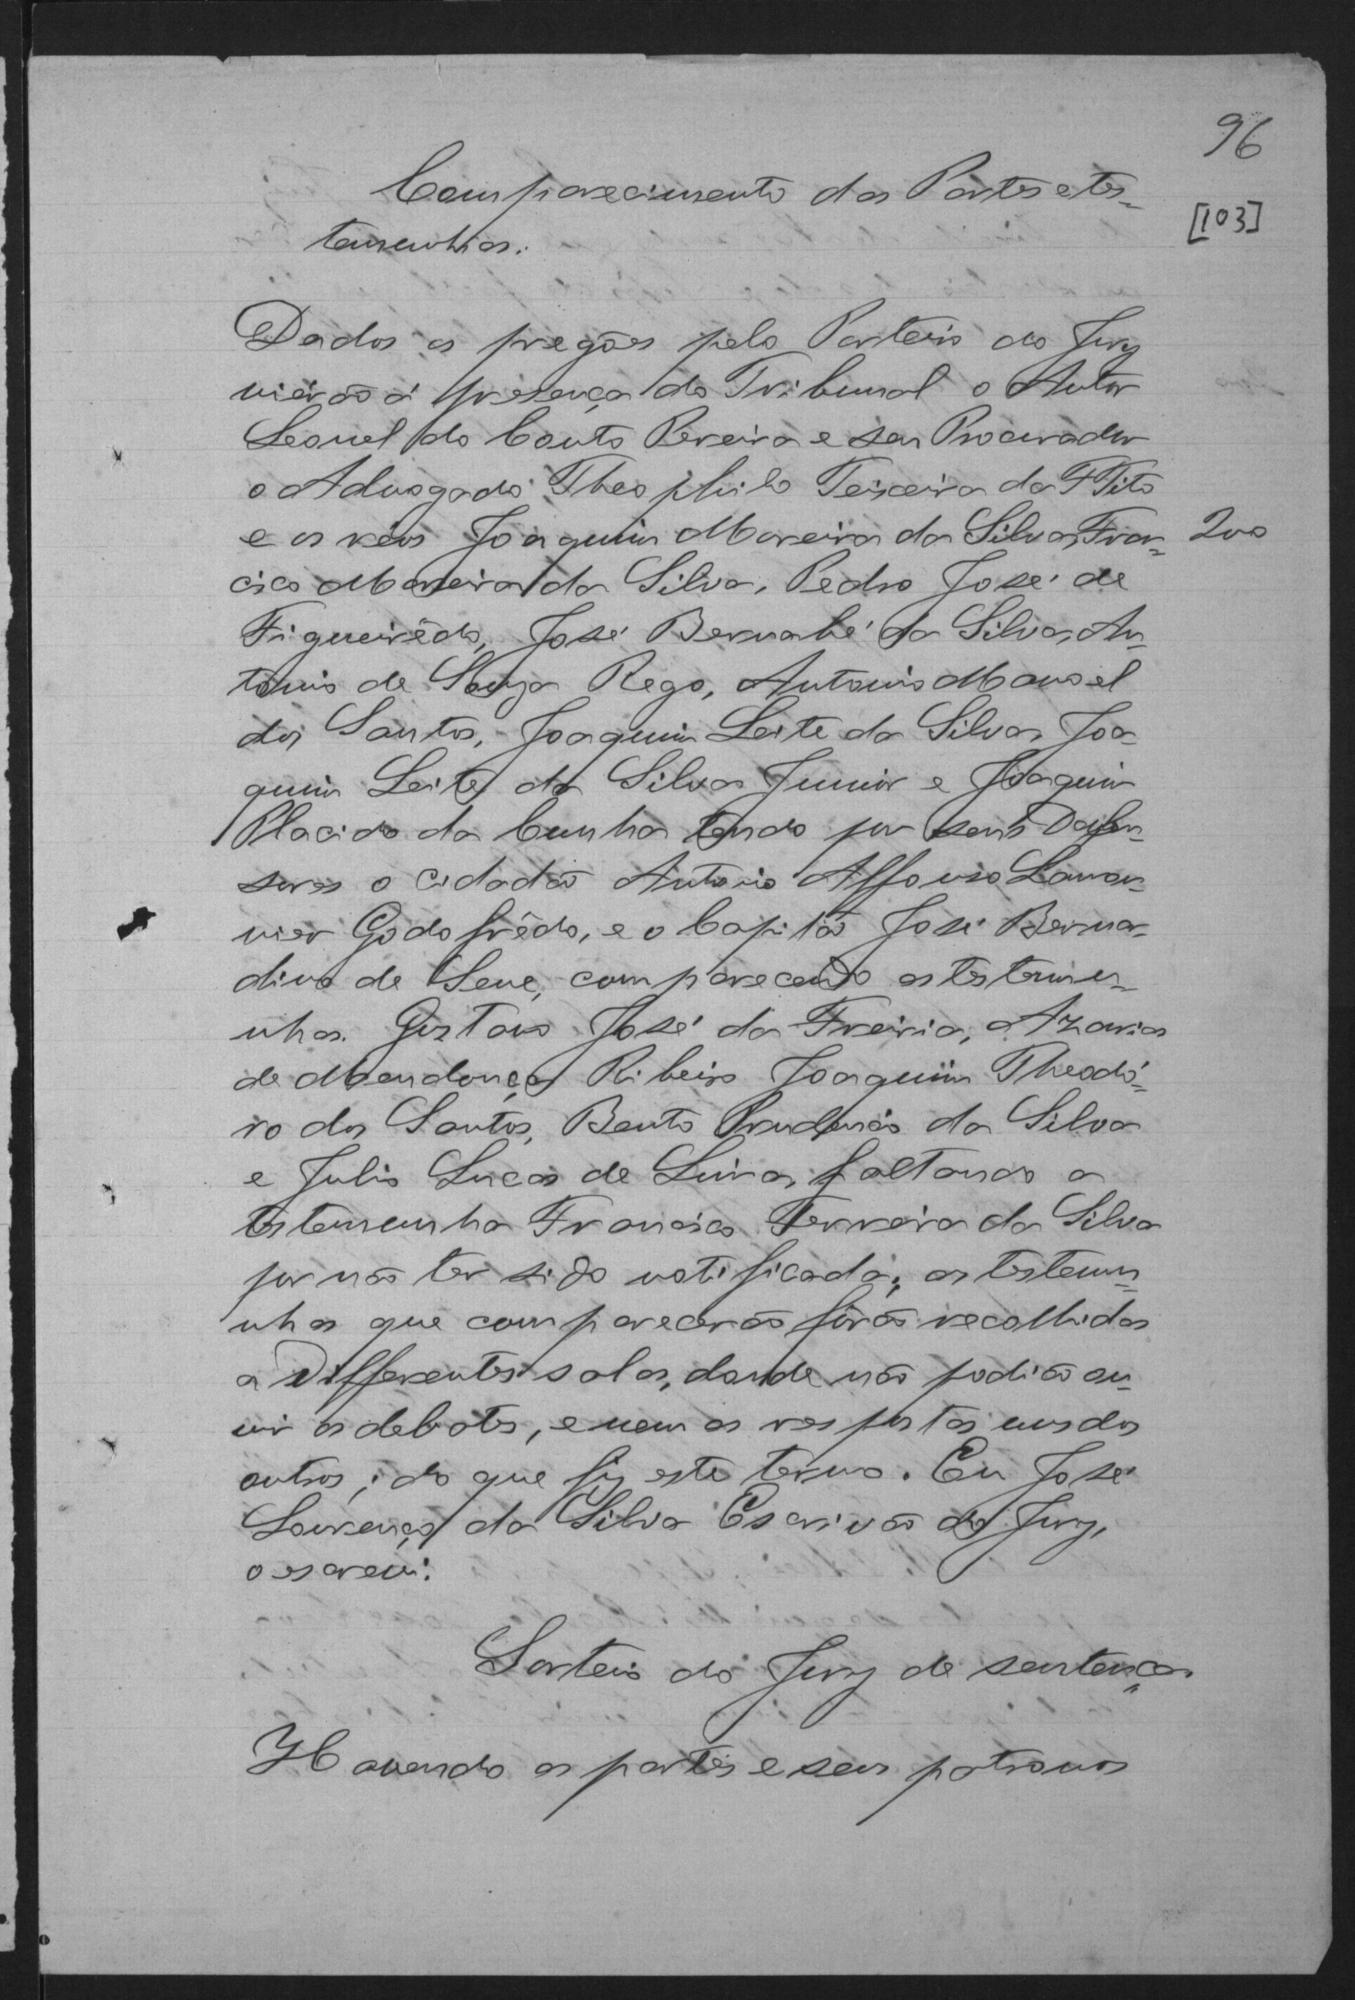 96
Comparecimento das Partes e tes-
temunhas.
[103]
Dados os pregões pelo Porteiro do Jury
vierão á presença do Tribunal o Autor
Leonel do Couto Pereira e seu Procurador
o Advogado Theophilo Teixeira da F Tito
e os réos Joaquim Moreira da Silva, Fran-
200
cisco Moreira da Silva, Pedro José de
Figueirêdo, José Bernabé da Silva, An-
tonio de Souza Rego, Antonio Manoel
dos Santos, Joaquim Leite da Silva, Joa-
quim Leite da Silva Junior e Joaquim
Placido da Cunha tendo por seus Defen-
sores o cidadão Antonio Affonso Lamou-
nier Godofrêdo, e o Capitão José Bernar-
dino de Sene, comparecendo as testemu-
nhas. Gustavo José da Freiria, Azarias
de Mendonça Ribeiro Joaquim Theodó-
ro dos Santos, Bento Prudencio da Silva
e Julio Lucas de Lima, faltando a
testemunha Francisco Ferreira da Silva
por não ter sido notificada; as testemu-
nhas que comparecerão fôrão recolhidas
a Differentes salas, donde não podião ou-
vir os debates, e nem as respostas uns dos
outros; do que fiz este termo. Eu José
Lourenço da Silva Escrivão do Jury,
o escrevi.
Sorteio do Jury de sentença.
Havendo as partes e seus patronos